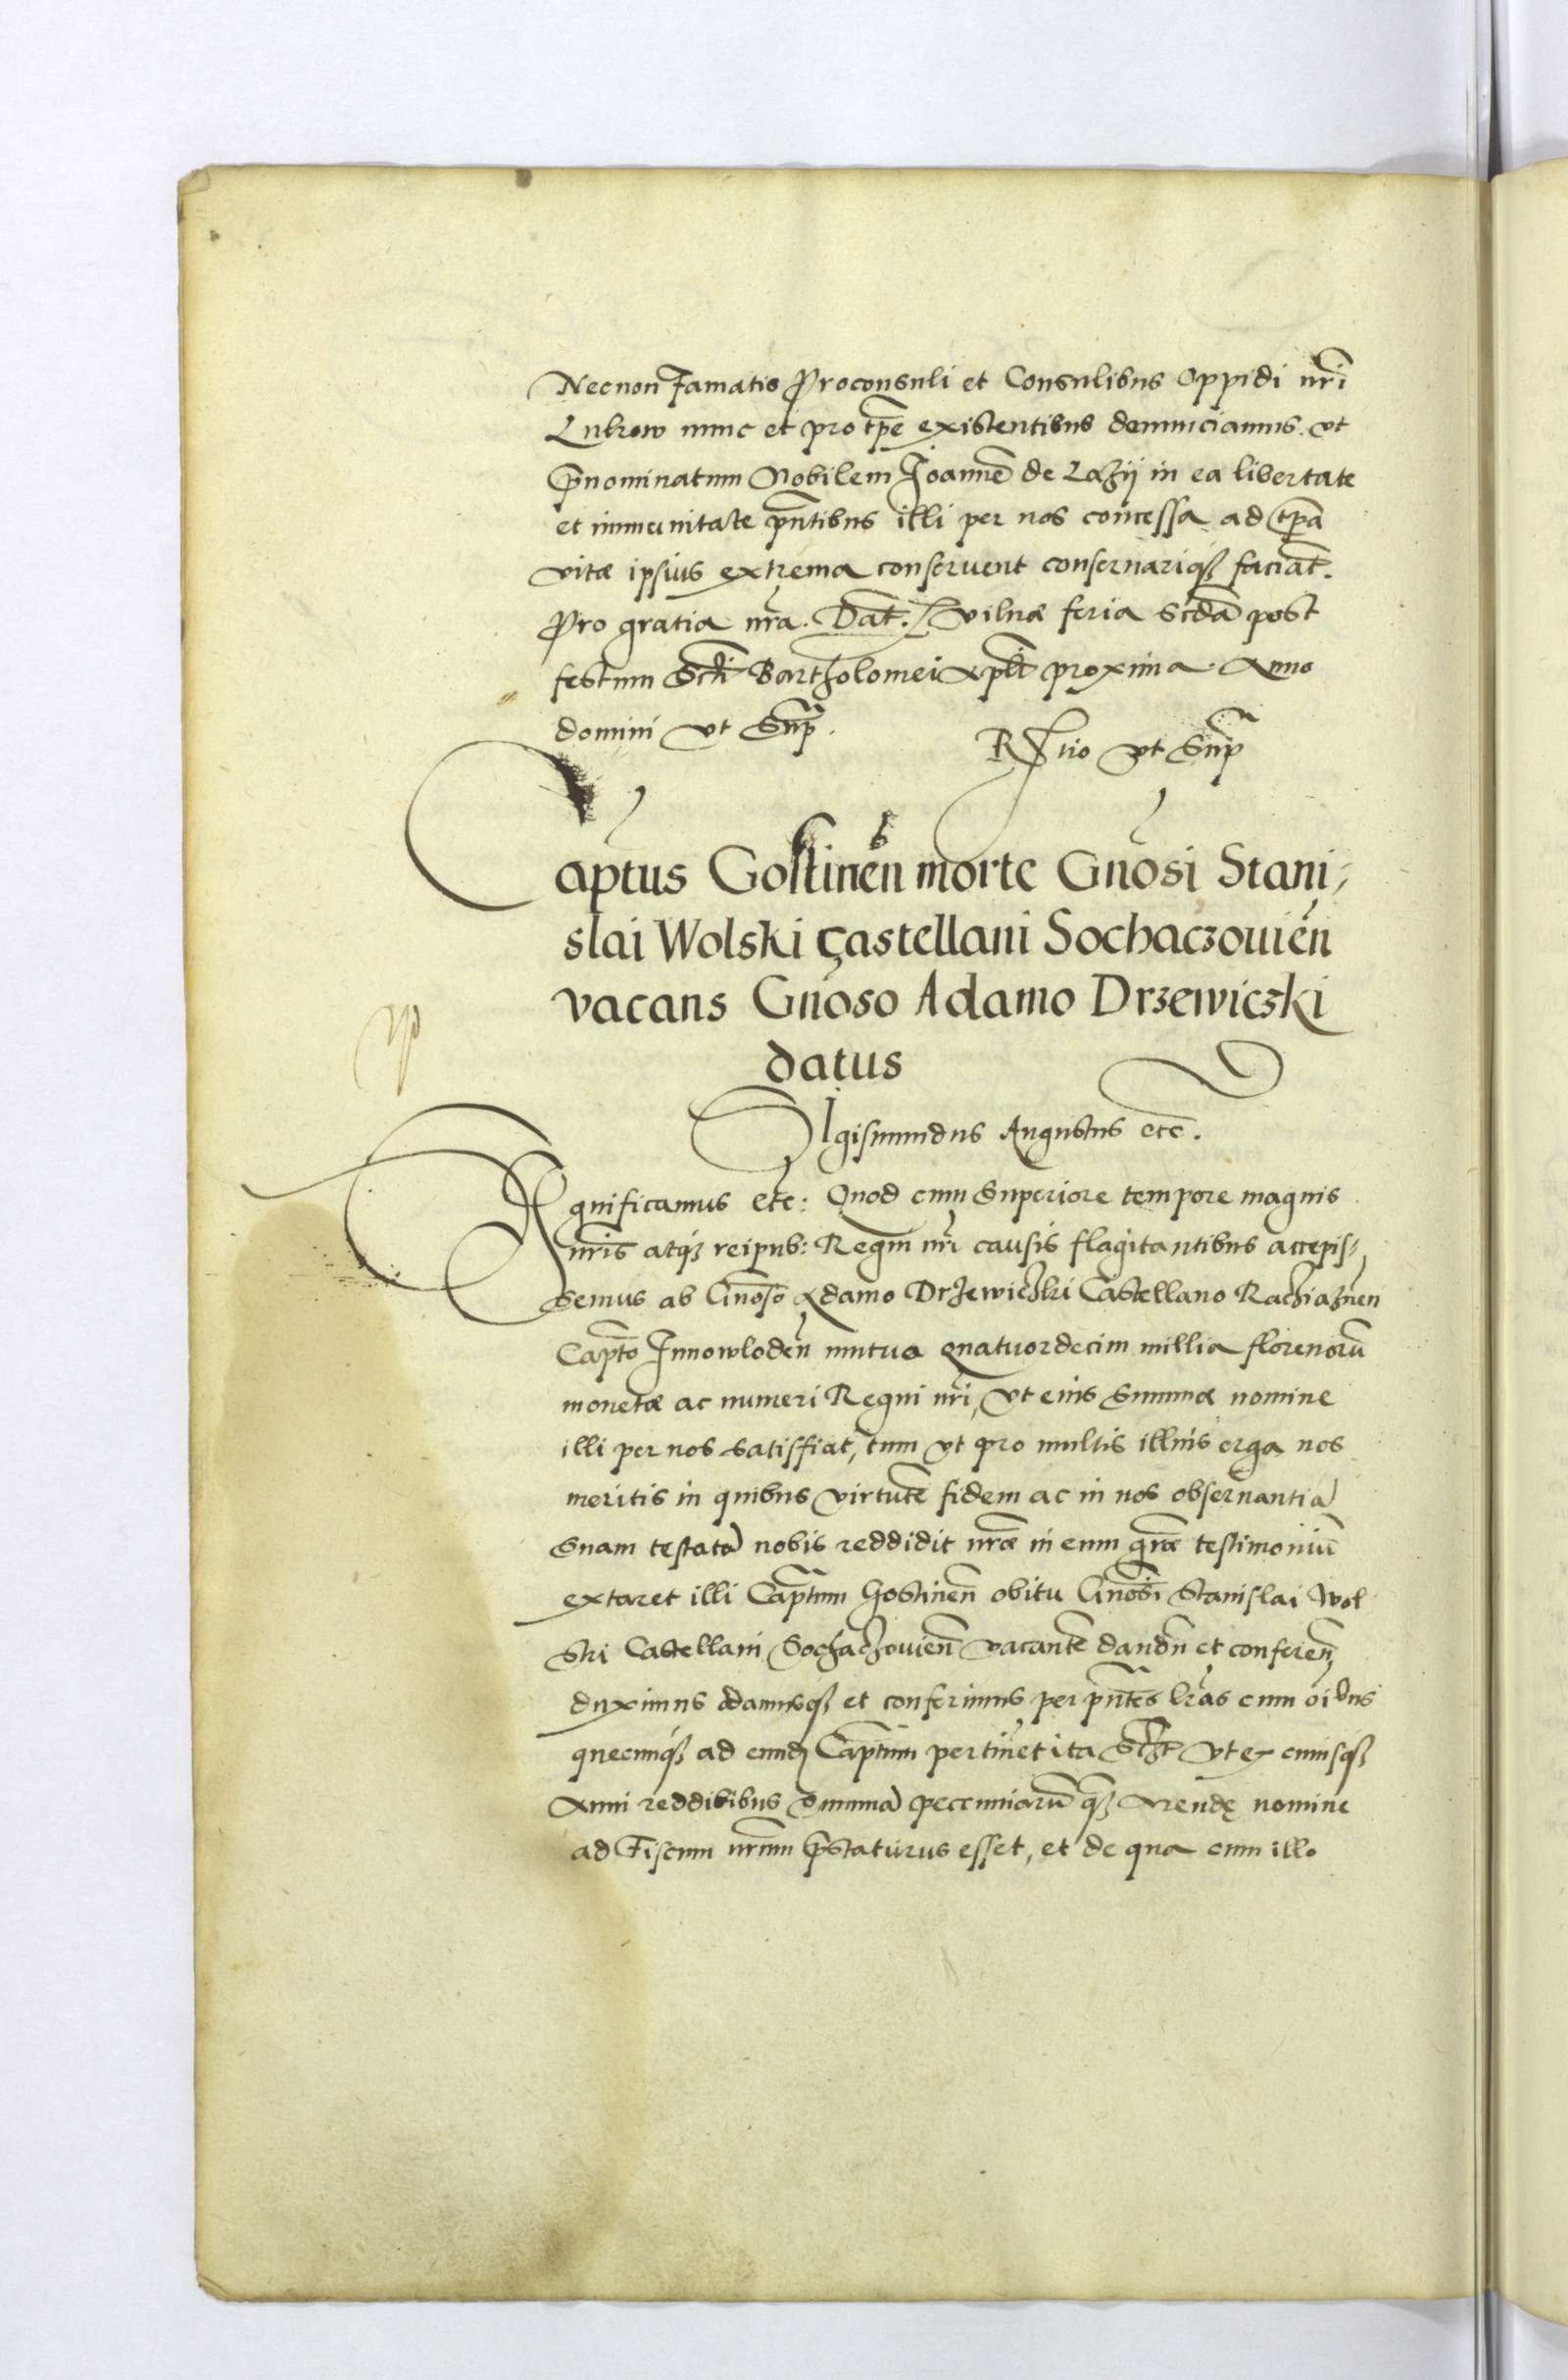 Necnon Famatis Proconsuli et Consulibus Oppidi nr̃i
Lukow nunc et pro tp̃e existentibus denunciamus. vt
p̃nominatum Nobilem Joannẽ de Lazij in ea libertate
et immunitate pñtibus illi per nos concessa ad tp̃a
vitæ ipsius extrema conseruent conseruariqꝫ faciãt.
Pro gratia nr̃a. Dat̃. Vilnæ feria Scdã post
festum Scti Bartholomei Apli proxima. Anno
domini vt Supr̃.
R̃tio vt Supr̃
Captus Gostineñ morte Gnosi Stani-
slai Wolski Castellani Sochaczouieñ
vacans Gnoso Adamo Drzewiczki
datus
SIgismundus Augustus etc̃.
SIgnificamus etc̃: Quod cum Superiore tempore magnis
nr̃is atqꝫ reipub: Regni nr̃i causis flagitantibus accepis-
semus ab Gnoso Adamo Drzewiczki Castellano Racziazneñ
Captõ Jnnowlodeñ mutua quatuordecim millia florenorũ
monetæ ac numeri Regni nr̃i, vt eius Summæ nomine
illi per nos satisfiat, tum vt pro multis illius erga nos
meritis in quibus virtutẽ fidem ac in nos obseruantiã
Suam testatã nobis reddidit nr̃æ in eum gr̃æ testimoniũ
extaret illi Captum Gostineñ obitu Gnosi Stanislai Wol
ski Castellani Sochaczouieñ vacantẽ dandũ et confereñ
duximus damusqꝫ et conferimus per pñtes lr̃as cum oibus
quecunqꝫ ad eundẽ Captum pertinet ita Sczt vt ex cuiusqꝫ
Anni redditibus Summã pecuniarũ quã Arendę nomine
ad Fiscum nr̃um p̃staturus esset, et de qua cum illo